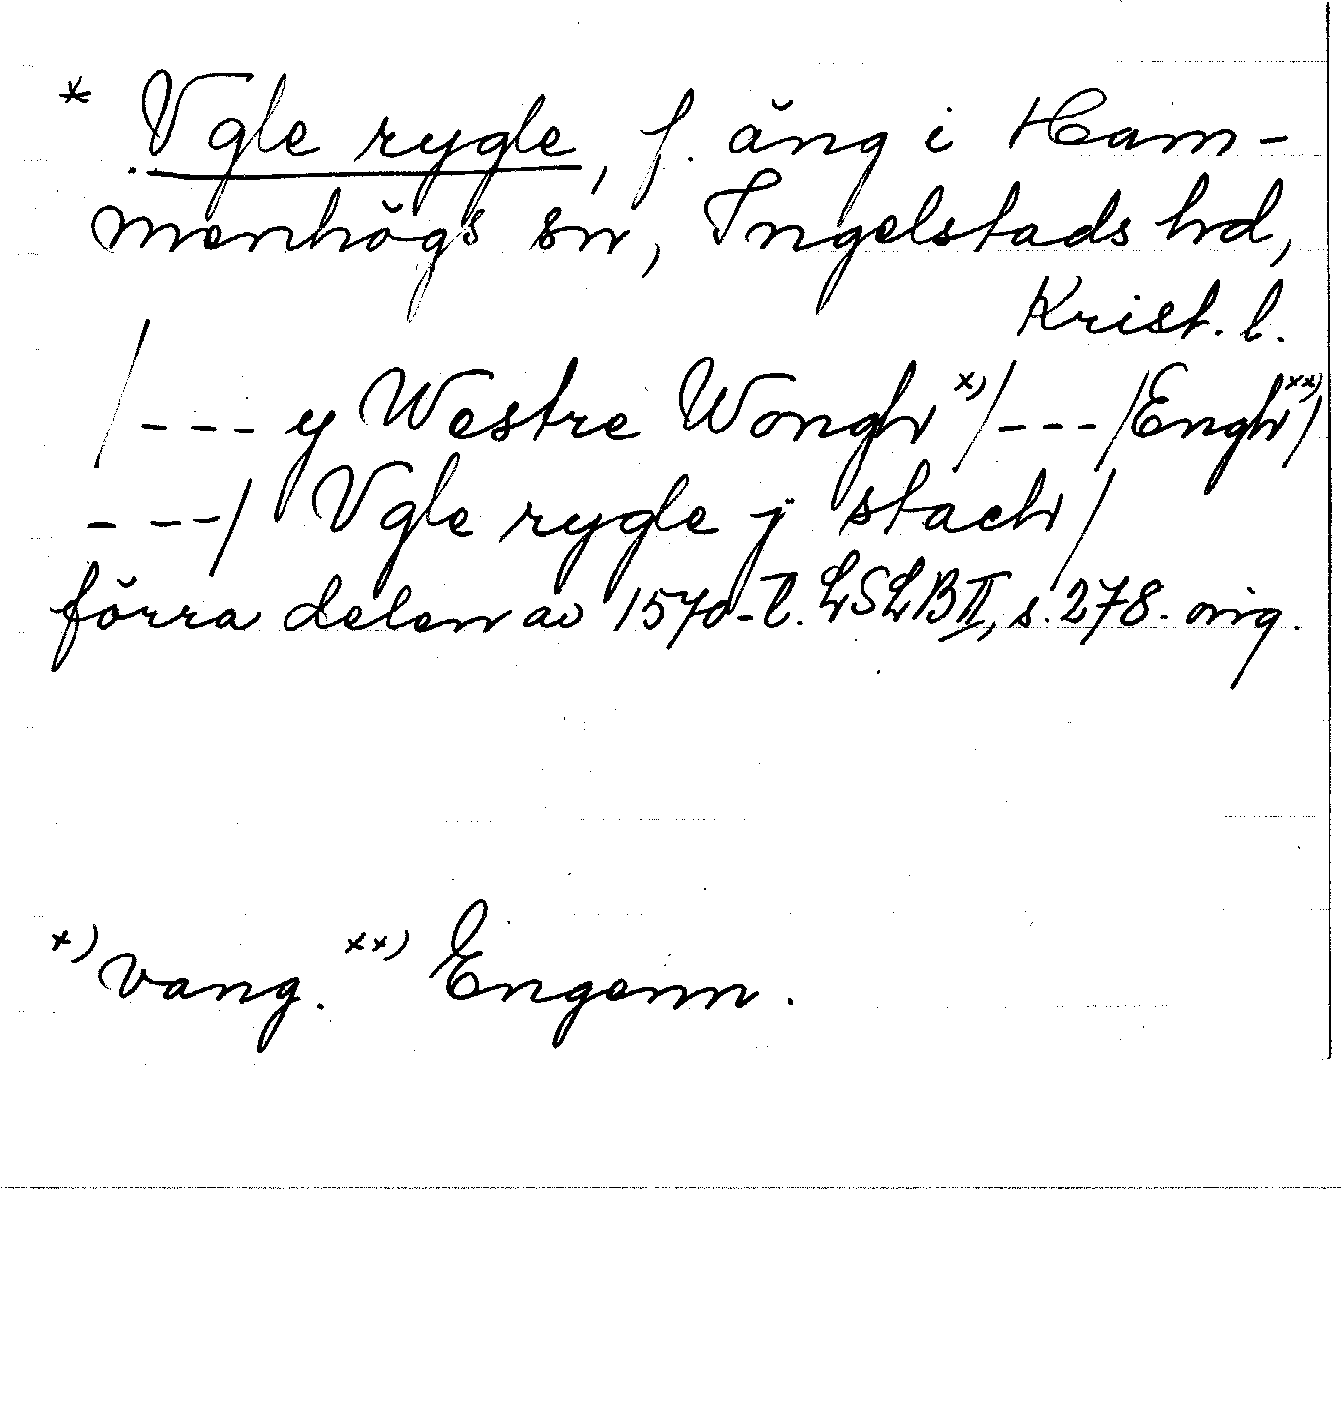 * Vgle rygle, f. äng i Ham-
menhögs sn, Ingelstads hd,
Krist. l.
/--- y Westre Wongh x)/---/Engh xx)/
---/ Vgle rygle j stach/
förra delen av 1570-t. LSLB II, s. 278. orig.
x) vang. xx) Engenn.